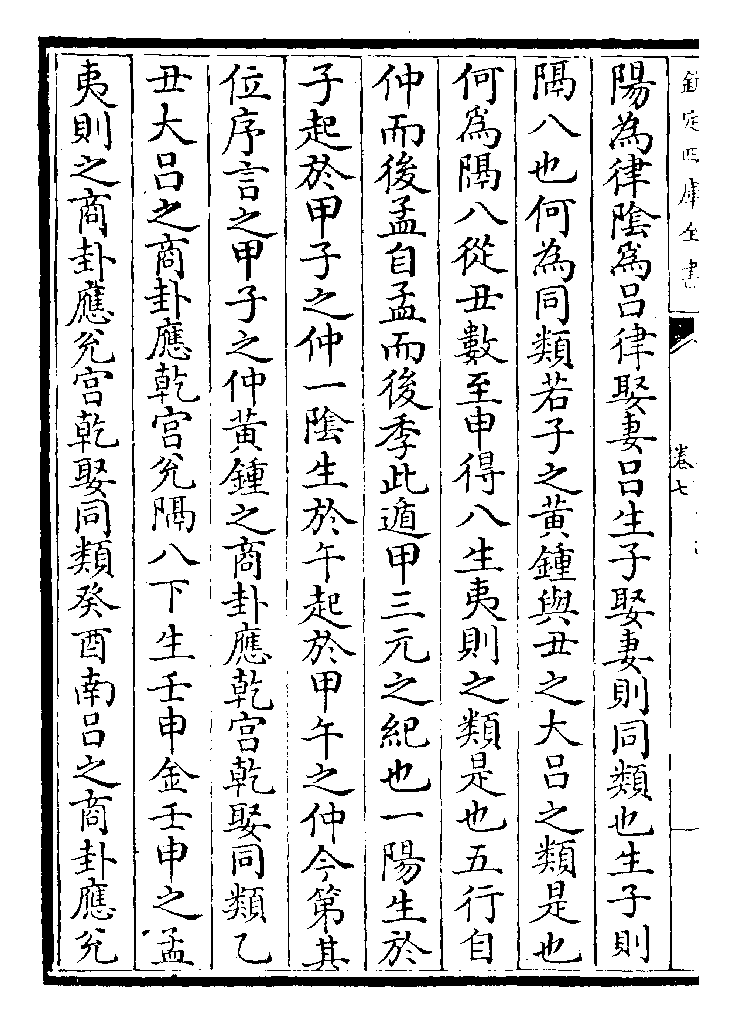 欽定四庫全書
卷七
陽為律陰爲呂律娶妻呂生子娶妻則同類也生子則
隔八也何為同類若子之黄鍾與丑之大呂之類是也
何爲隔八從丑數至申得八生夷則之類是也五行自
仲而後孟自孟而後季此遁甲三元之紀也一陽生於
子起於甲子之仲一陰生於午起於甲午之仲今第其
位序言之甲子之仲黄鍾之商卦應乾宫乾娶同類乙
丑大呂之商卦應乾宫兊隔八下生壬申金壬申之孟
夷則之商卦應兊宫乾娶同類癸酉南呂之商卦應兊